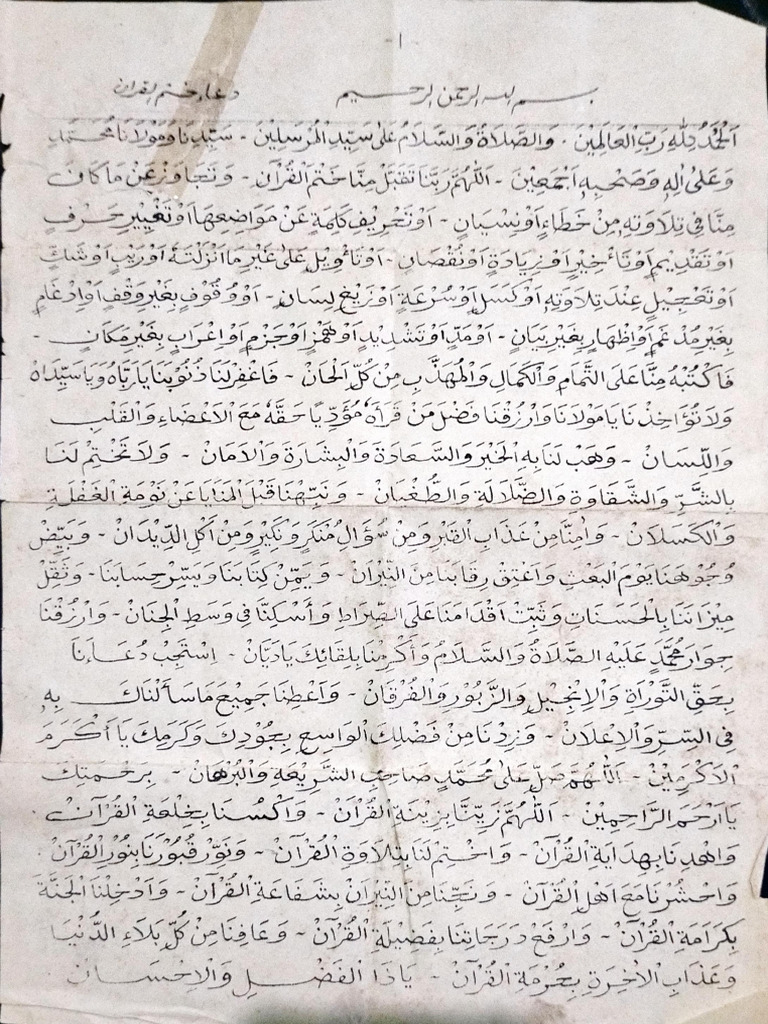 - ١ -
بسم الله الرحمن الرحيم دعاء ختم القران
اَلْحَمْدُ لِلّٰهِ رَبِّ الْعَالَمِيْنَ - وَالصَّلَاةُ وَالسَّلَامُ عَلٰى سَيِّدِ الْمُرْسَلِيْنَ - سَيِّدِنَا وَمَوْلَانَا مُحَمَّدٍ
وَعَلٰى اٰلِهٖ وَصَحْبِهٖ اَجْمَعِيْنَ - اَللّٰهُمَّ رَبَّنَا تَقَبَّلْ مِنَّا خَتْمَ الْقُرْاٰنِ - وَتَجَاوَزْ عَنْ مَا كَانَ
مِنَّا فِى تِلَاوَتِهٖ مِنْ خَطَاءٍ اَوْ نِسْيَانٍ - اَوْ تَحْرِيْفِ كَلِمَةٍ عَنْ مَوَاضِعِهَا اَوْ تَغْيِيْرِ حَرْفٍ
اَوْ تَقْدِيْمٍ اَوْ تَأْخِيْرٍ اَوْ زِيَادَةٍ اَوْ نُقْصَانٍ - اَوْ تَأْوِيْلٍ عَلٰى غَيْرِ مَا اَنْزَلْتَهٗ اَوْ رَيْبٍ اَوْ شَكٍّ
اَوْ تَعْجِيْلٍ عِنْدَ تِلَاوَتِهٖ اَوْ كَسَلٍ اَوْ سُرْعَةٍ اَوْ زَيْغِ لِسَانٍ - اَوْ وُقُوْفٍ بِغَيْرِ وَقْفٍ اَوْ اِدْغَامٍ
بِغَيْرِ مُدْغَمٍ اَوْ اِظْهَارٍ بِغَيْرِ بَيَانٍ - اَوْ مَدٍّ اَوْ تَشْدِيْدٍ اَوْ هَمْزٍ اَوْ جَزْمٍ اَوْ اِعْرَابٍ بِغَيْرِ مَكَانٍ -
فَاكْتُبْهُ مِنَّا عَلَى التَّمَامِ وَالْكَمَالِ وَالْمُهَذَّبِ مِنْ كُلِّ الْحَانْ - فَاغْفِرْلَنَا ذُنُوْبَنَا يَارَبَّاهُ وَيَا سَيِّدَاهْ
وَلَا تُؤَاخِذْنَا يَا مَوْلَانَا وَارْزُقْنَا فَضْلَ مَنْ قَرَأَهٗ مُؤَدِّيًا حَقَّهٗ مَعَ الْاَعْضَاءِ وَالْقَلْبِ
وَاللِّسَانْ - وَهَبْ لَنَا بِهِ الْخَيْرَ وَالسَّعَادَةَ وَالْبِشَارَةَ وَالْاَمَانْ - وَلَا تَخْتِمْ لَنَا
بِالشَّرِّ وَالشَّقَاوَةِ وَالضَّلَالَةِ وَالطُّغْيَانْ - وَنَبِّهْنَا قَبْلَ الْمَنَايَا عَنْ نَوْمَةِ الْغَفْلَةِ
وَالْكَسَلَانْ - وَاٰمِنَّا مِنْ عَذَابِ الْقَبْرِ وَمِنْ سُؤَالِ مُنْكَرٍ وَنَكِيْرٍ وَمِنْ اَكْلِ الدِّيْدَانْ - وَبَيِّضْ
وُجُوْهَنَا يَوْمَ الْبَعْثِ وَاعْتِقْ رِقَابَنَا مِنَ النِّيْرَانْ - وَيَمِّنْ كِتَابَنَا وَيَسِّرْ حِسَابَنَا - وَثَقِّلْ
مِيْزَانَنَا بِالْحَسَنَاتِ وَثَبِّتْ اَقْدَامَنَا عَلَى الصِّرَاطِ وَأَسْكِنَّا فِى وَسَطِ الْجِنَانْ - وَارْزُقْنَا
جِوَارَ مُحَمَّدٍ عَلَيْهِ الصَّلَاةُ وَالسَّلَامُ وَأَكْرِمْنَا بِلِقَائِكَ يَا دَيَّانْ - اِسْتَجِبْ دُعَاءَنَا
بِحَقِّ التَّوْرٰاةِ وَالْاِنْجِيْلِ وَالزَّبُوْرِ وَالْفُرْقَانْ - وَاَعْطِنَا جَمِيْعَ مَا سَأَلْنَاكَ بِهٖ
فِى السِّرِّ وَالْاِعْلَانْ - وَزِدْنَا مِنْ فَضْلِكَ الْوَاسِعِ بِجُوْدِكَ وَكَرَمِكَ يَا أَكْرَمَ
الْاَكْرَمِيْنْ - اَللّٰهُمَّ صَلِّ عَلٰى مُحَمَّدٍ صَاحِبِ الشَّرِيْعَةِ وَالْبُرْهَانْ - بِرَحْمَتِكَ
يَا اَرْحَمَ الرَّاحِمِيْنْ - اَللّٰهُمَّ زَيِّنَّا بِزِيْنَةِ الْقُرْآنْ - وَاَكْسُنَا بِخِلْعَةِ الْقُرْآنْ .
وَاهْدِنَا بِهِدَايَةِ الْقُرْآنْ - وَاخْتِمْ لَنَا بِتِلَاوَةِ الْقُرْآنْ - وَنَوِّرْ قُبُوْرَنَا بِنُوْرِ الْقُرْآنْ
وَاحْشُرْنَا مَعَ اَهْلِ الْقُرْآنْ - وَنَجِّنَا مِنَ النِّيْرَانِ بِشَفَاعَةِ الْقُرْآنْ - وَاَدْخِلْنَا الْجَنَّةَ
بِكَرَامَةِ الْقُرْآنْ - وَارْفَعْ دَرَجَاتِنَا بِفَضِيْلَةِ الْقُرْآنْ - وَعَافِنَا مِنْ كُلِّ بَلَاءِ الدُّنْيَا
وَعَذَابِ الْاٰخِرَةِ بِحُرْمَةِ الْقُرْآنْ - يَا ذَا الْفَضْلِ وَالْاِحْسَانْ